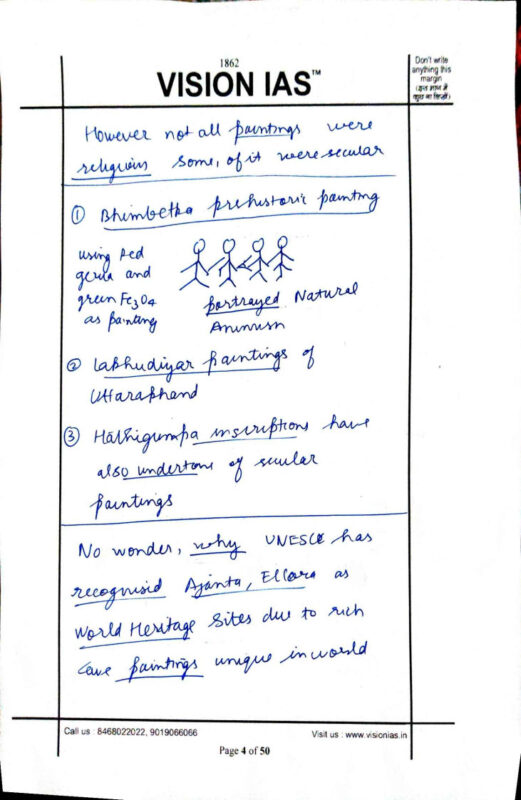 1862
VISION IAS™
Don't write
anything this
margin
(इस भाग में
कुछ ना लिखें)
However not all paintings were
religious some, of it were secular
① Bhimbetka prehistoric painting
using Red
gerua and
green Fe3O4
as painting
portrayed Natural
Animism
② Lakhudiyar paintings of
Uttarakhand
③ Hathigumpa inscriptions have
also undertone of secular
paintings
No wonder, why UNESCO has
recognised Ajanta, Ellora as
World Heritage Sites due to rich
cave paintings unique in world
Call us : 8468022022, 9019066066
Visit us : www.visionias.in
Page 4 of 50